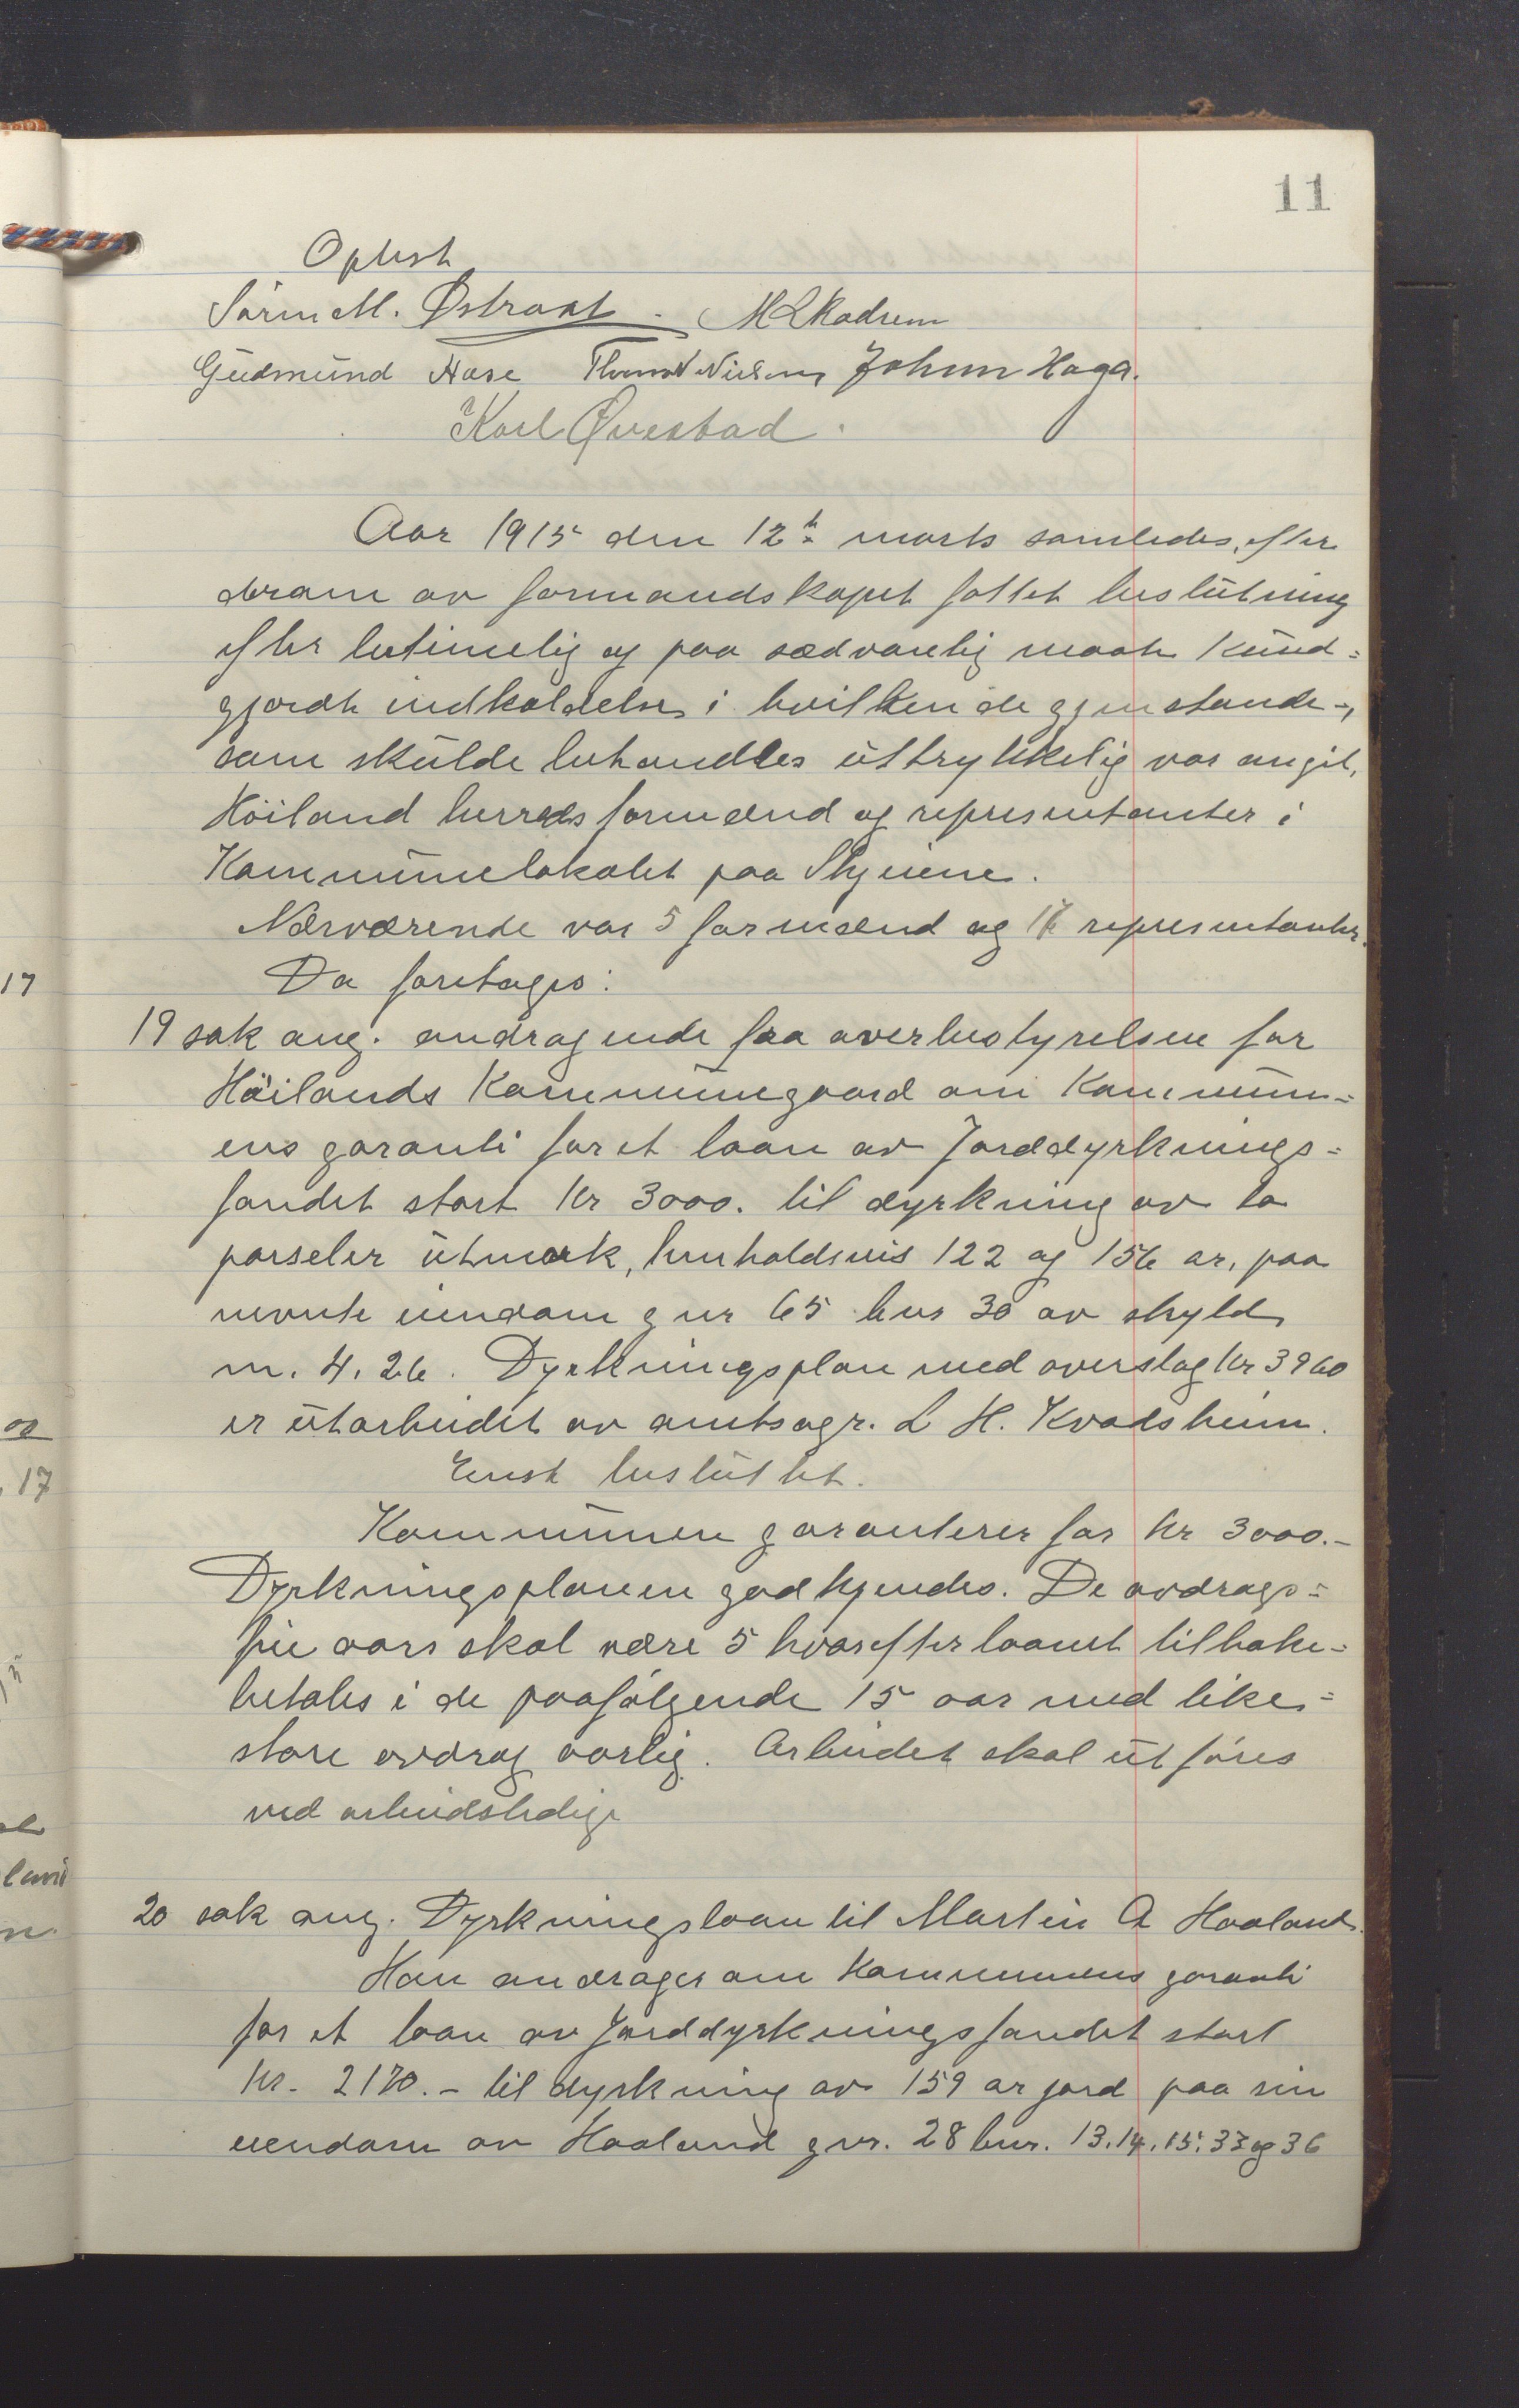 11
Oplest
Sørin M. Østraat. M L Kadiem
Gudmund Aase Thomas Nielsen Johan Haga.
Karl Qvestad.
Aar 1915 den 12te marts samledes, efter
derom av formandskapet fattet beslutning
efter betimelig og paa sædvanlig maate kund=
gjordt indkaldelse i hvilken de gjenstande,
som skulde behandles uttrykkelig var angit,
Höiland herreds formænd og representanter i
Kommunelokalet paa Skjenene.
Nærværende var 5 formænd og 17 representanter.
Da foretages:
19 sak ang. andragende fra overbestyrelsen for
Höilands Kommunegaard om Kommun=
ens garanti for et laan av Jorddyrknings=
fondet stort kr 3000. til dyrkning av to
parseler utmark, henholdsvis 122 og 156 ar, paa
nevnte eiendom g nr 65 bnr 30 av skyld
m. 4.26. Dyrkningsplan med overslag kr 3960
er utarbeidet av amtsagr. L H. Kvadsheim.
Enst besluttet.
Kommunen garanterer for kr 3000.-
Dyrkningsplanen godkjendes. De avdrags=
frie aars skal være 5 hvorefter laanet tilbake=
betales i de paafølgende 15 aar med like=
store avdrag aarlig. Arbeidet skal utføres
ved arbeidsledige
20 sak ang. Dyrkningslaan til Martin A Haaland.
Han andrager om Kommunens garanti
for et laan av Jorddyrkningsfondet stort
kr. 2170.- til dyrkning av 159 ar jord paa sin
eiendom av Haaland gnr. 28 bnr. 13.14.15.33 og 36